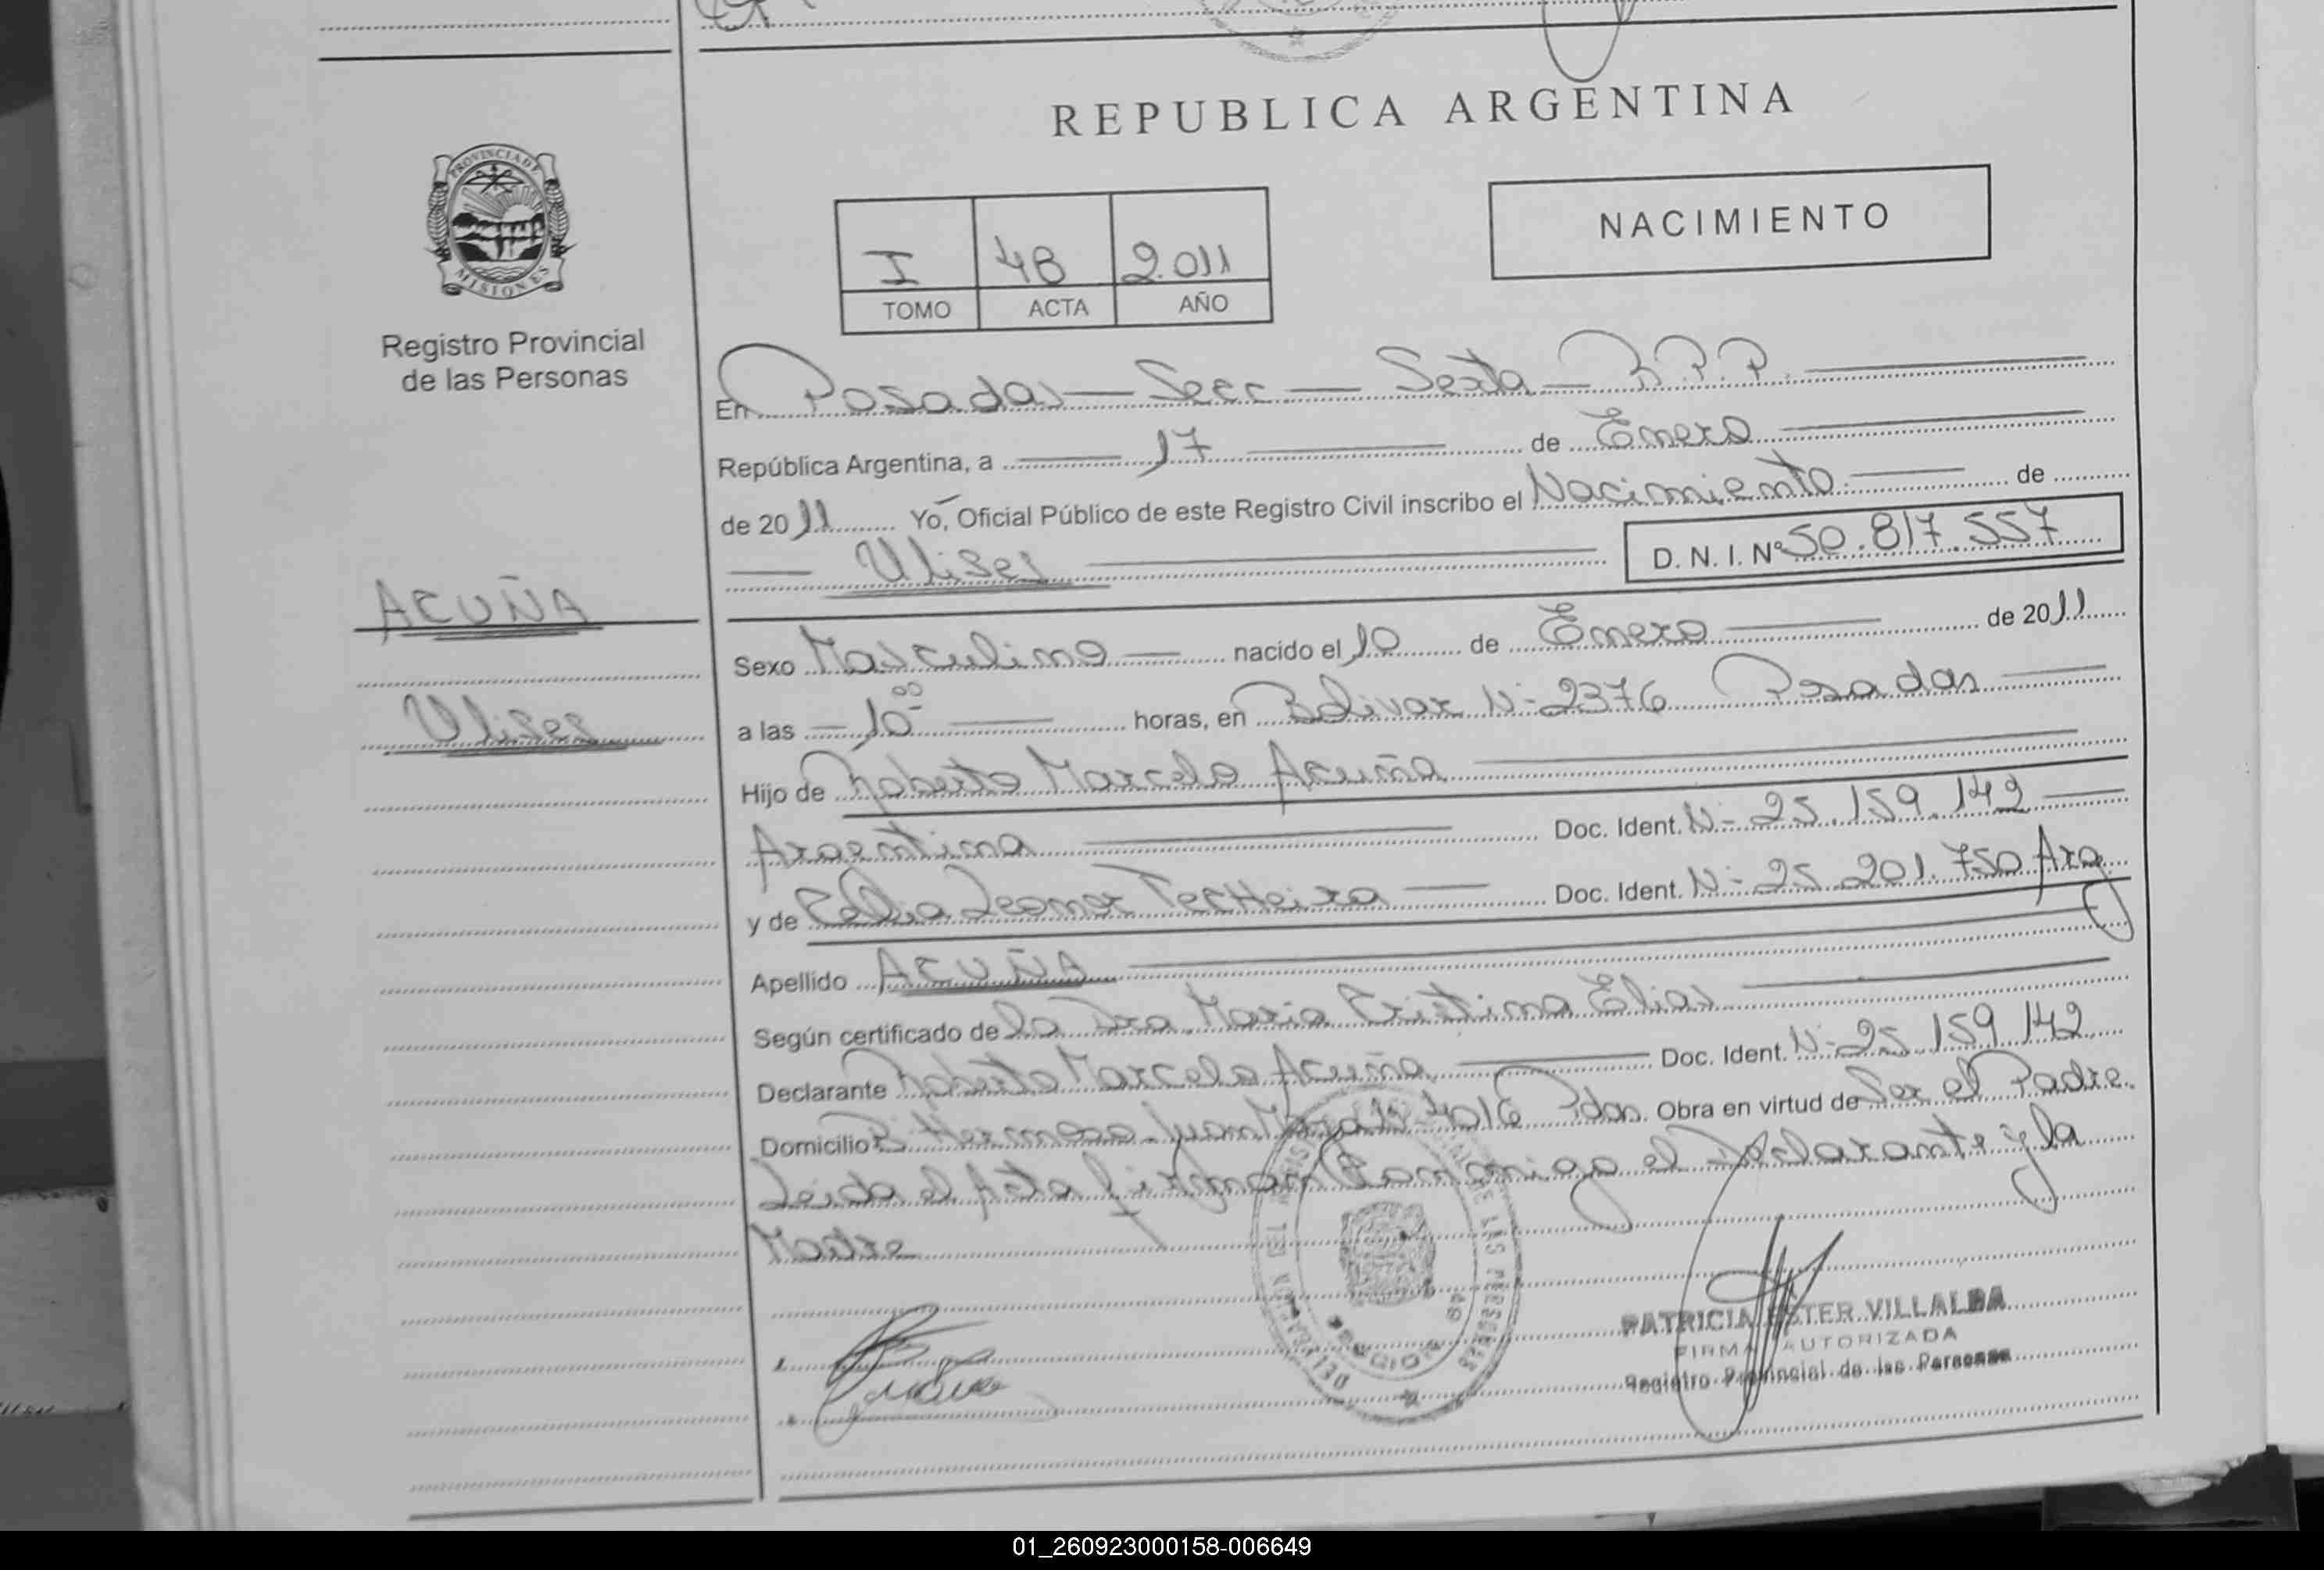 REPUBLICA ARGENTINA
PROVINCIA DE
MISIONES
Registro Provincial
de las Personas
NACIMIENTO
I 48 2.011
TOMO ACTA AÑO
En Posadas — Secc — Sexta — R.P.P.
República Argentina, a 17 de Enero
de 2011 Yo, Oficial Público de este Registro Civil inscribo el Nacimiento de
Ulises D. N. I. Nº 50.817.557
ACUÑA
Ulises
Sexo Masculino nacido el 10 de Enero de 2011
a las 10 00 horas, en Bolivar N- 2376 Posadas
Hijo de Marcelo Acuña
Argentino Doc. Ident. N- 25.159.142
y de Leonor Doc. Ident. N- 25.201.750 Arg
Apellido ACUÑA
Según certificado de la Dra Maria Elias
Declarante Marcelo Acuña Doc. Ident. N-25.159.142
Domicilio Pdas. Obra en virtud de Ser el Padre.
Leida el Acta el Declarante y la
Madre
DELEGACION DE LAS PERSONAS
SECCION 6a
PATRICIA ESTER VILLALBA
FIRMA AUTORIZADA
Registro Provincial de las Personas
01_260923000158-006649